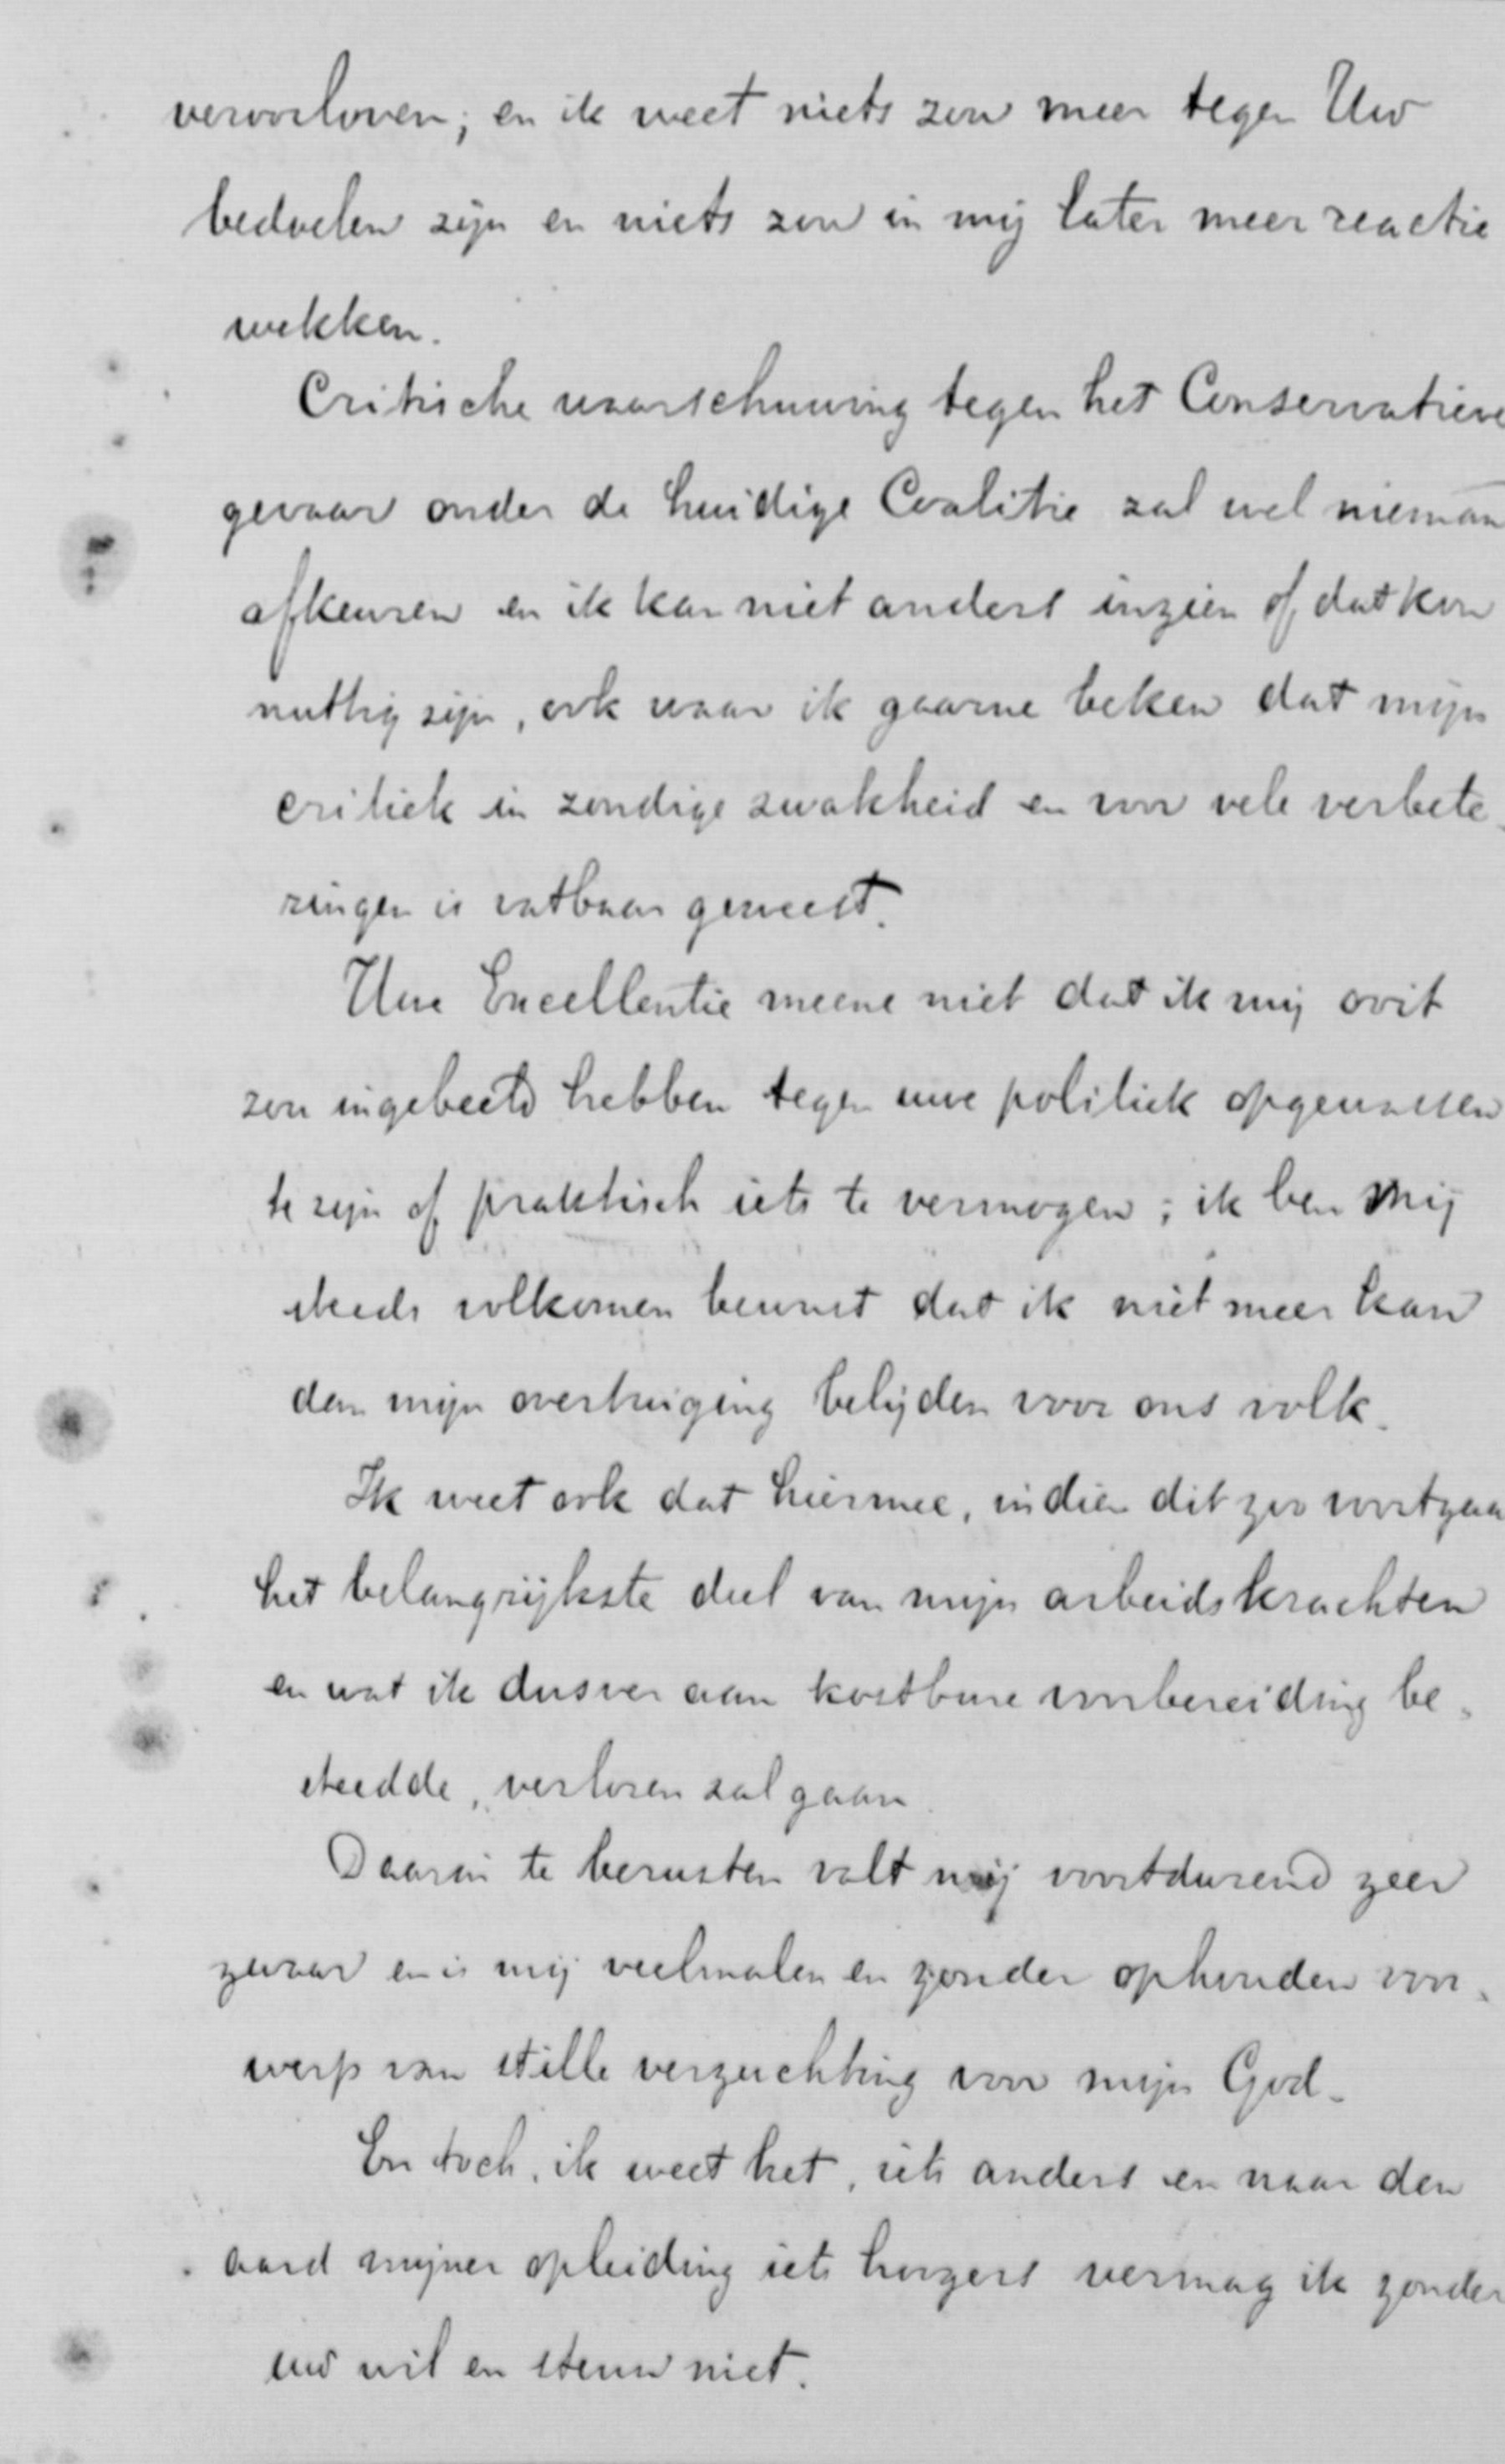 veroorloven; en ik weet niets zou meer tegen Uw
bedoelen zijn en niets zou in mij later meer reactie
wekken.
Critische waarschuwing tegen het Conservatieve
gevaar onder de huidige Coalitie zal wel nieman
afkeuren en ik kan niet anders inzien of dat kon
nuttig zijn, ook waar ik gaarne beken dat mijn
critiek in zondige zwakheid en voor vele verbete-
ringen is vatbaar geweest.
Uwe Excellentie meene niet dat ik mij ooit
zou ingebeeld hebben tegen uwe politiek opgewassen
te zijn of praktisch iets te vermogen; ik ben mij
steeds volkomen bewust dat ik niet meer kan
dan mijn overtuiging belijden voor ons volk.
Ik weet ook dat hiermee, indien dit zoo voortgaa
het belangrijkste deel van mijn arbeidskrachten
en wat ik dusver aan kostbare voorbereiding be-
steedde, verloren zal gaan.
Daarin te berusten valt mij voortdurend zeer
zwaar en is mij veelmalen en zonder ophouden voor-
werp van stille verzuchting voor mijn God.
En toch, ik weet het, iets anders en naar den
aard mijner opleiding iets hoogers vermag ik zonder
uw wil en steun niet.